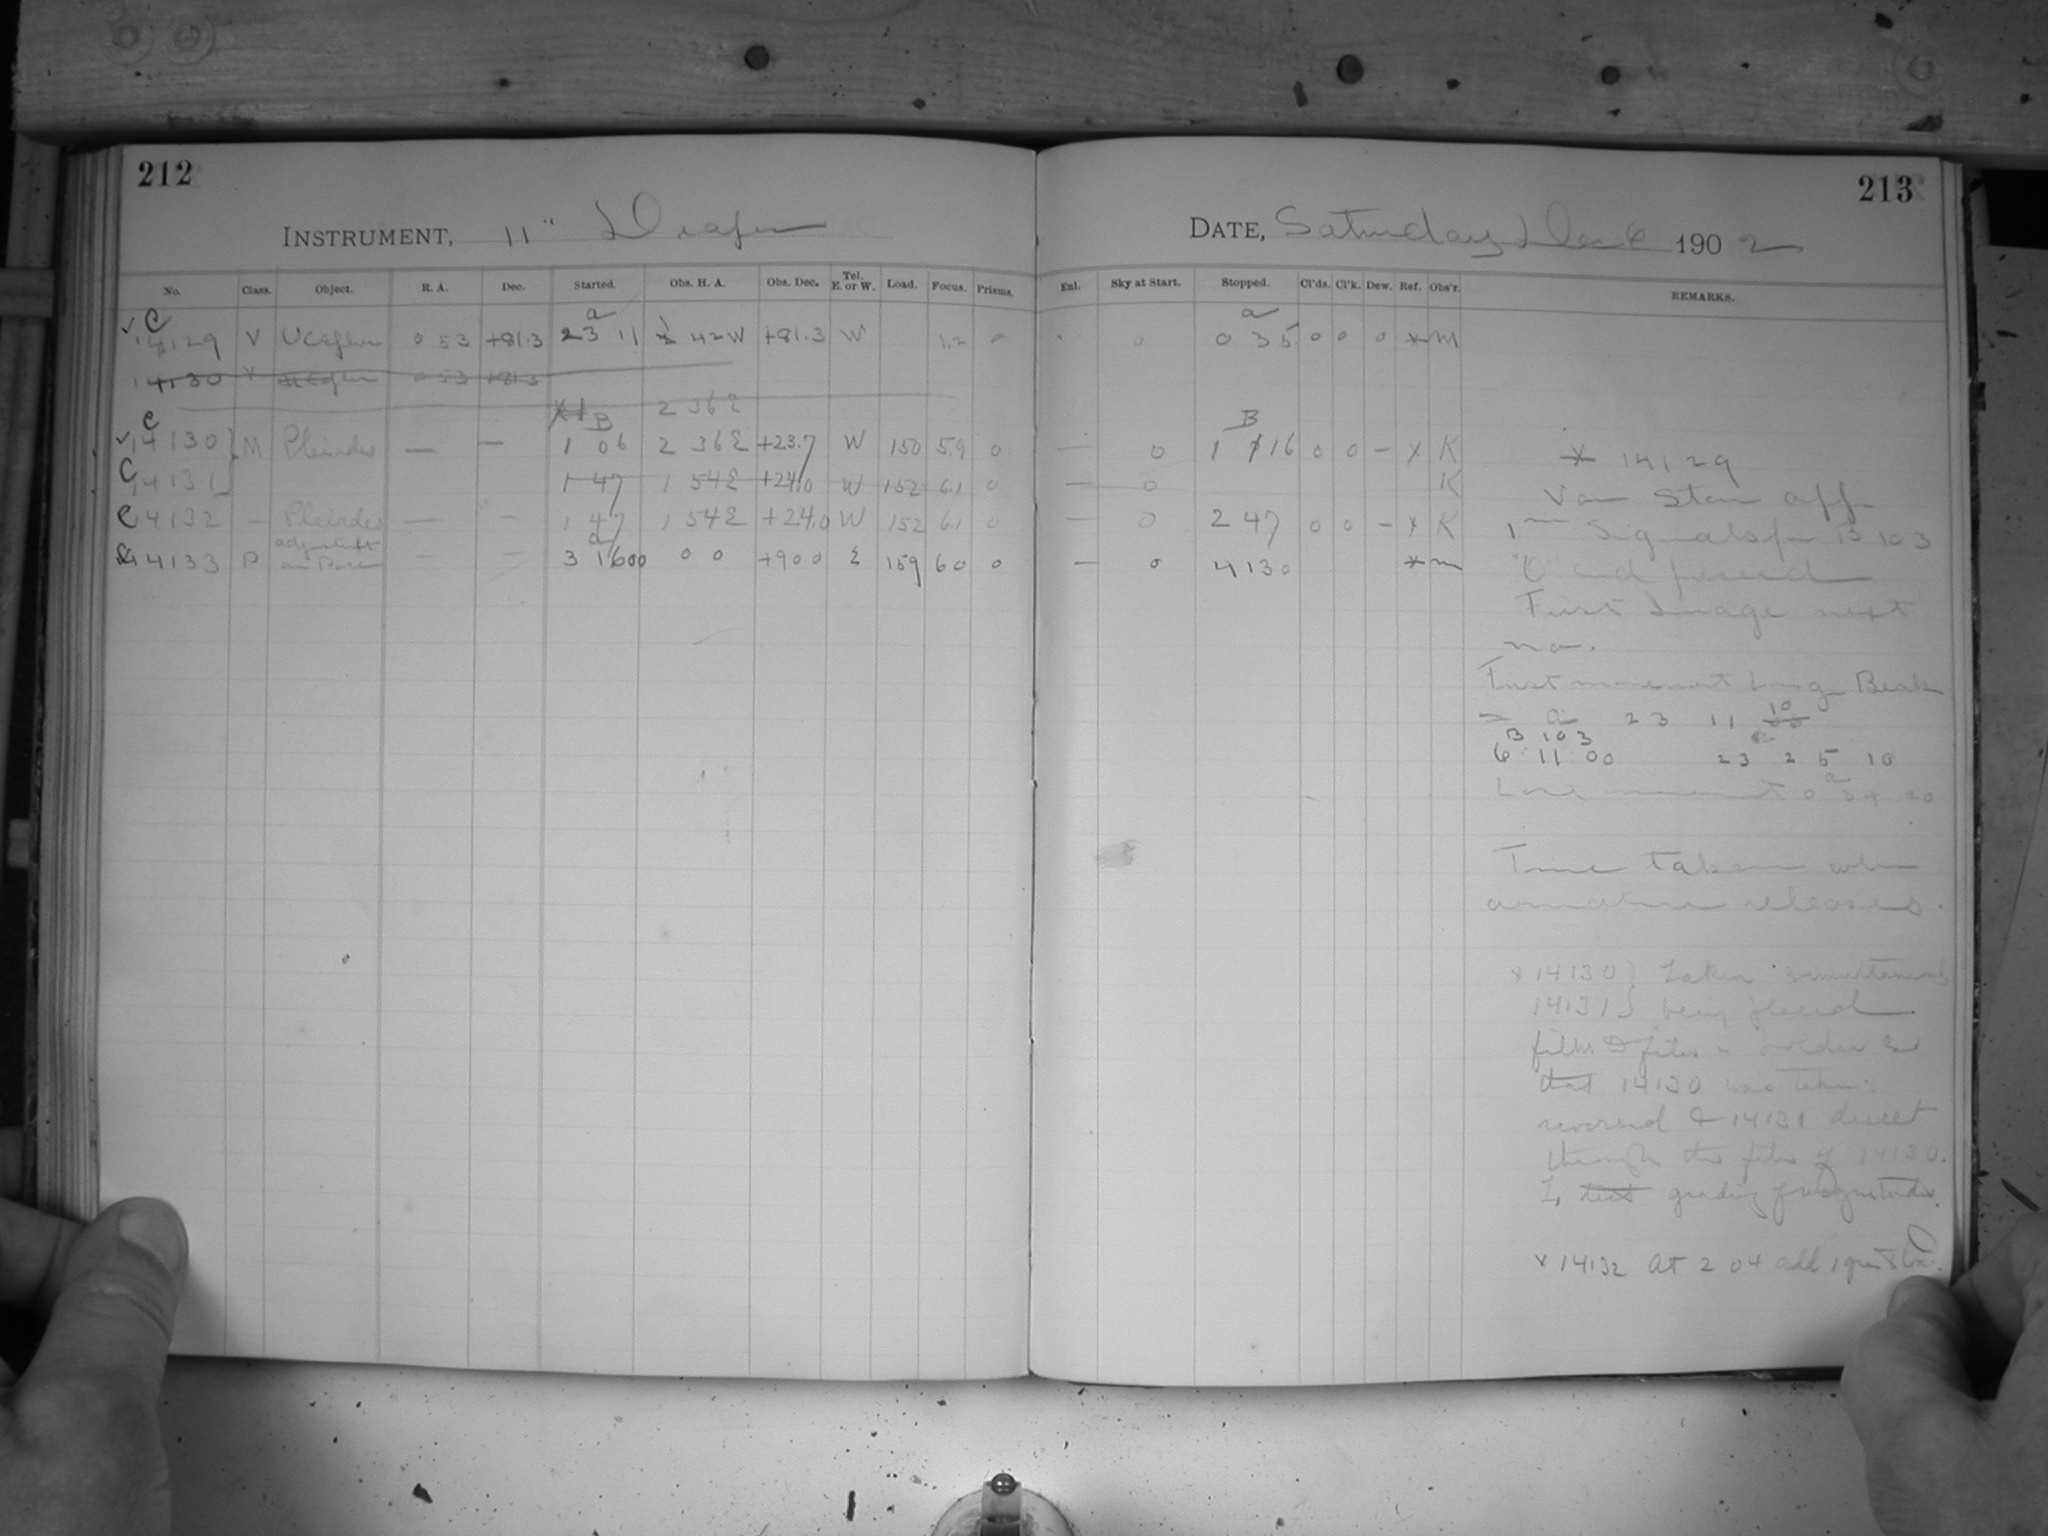 212
213
INSTRUMENT, 11" Draper
DATE, Saturday Dec 6 1902
No. Class. Object. R. A. Dec. Started. Obs. H. A. Obs. Dec. Tel. E. or W. Load. Focus. Prisms.
Enl. Sky at Start. Stopped. Cl'ds. Cl'k. Dew. Ref. Obs'r. REMARKS.
a a
C 14129 V U Cephei 0 53 +81.3 23 11 42 W +81.3 W 1.2 0 0 0 35 0 0 0 * M
14130 V U Cephei 0 53 +81.3
2 36 E
C B B
14130 } M Pleiades — — 1 06 2 36 E +23.7 W 150 5.9 0 — 0 1 16 0 0 – x K
C 14131 1 47 1 54 E +24.0 W 152 6.1 0 — 0 K
C 14132 – Pleiades — – 1 47 1 54 E +24.0 W 152 6.1 0 — 0 2 47 0 0 – x K
adjustment a
14133 P on Pole – – 3 16 00 0 0 +90 0 E 159 60 0 — 0 4 13 0 * m
* 14129
Van Stan off
1 Signals for B 103
"0" and
First Image next
no.
First movement Long Break
= a 23 11 10
B 103
6 11 00 23 25 10
a
movement 0 34 20
Time taken when
armature releases.
x 14130 } taken simultaneously
14131 } being placed
film to film in holder so
that 14130 was taken
reversed & 14131 direct
through the film of 14130.
To test grading of magnitudes.
x 14132 at 2 04 add 1